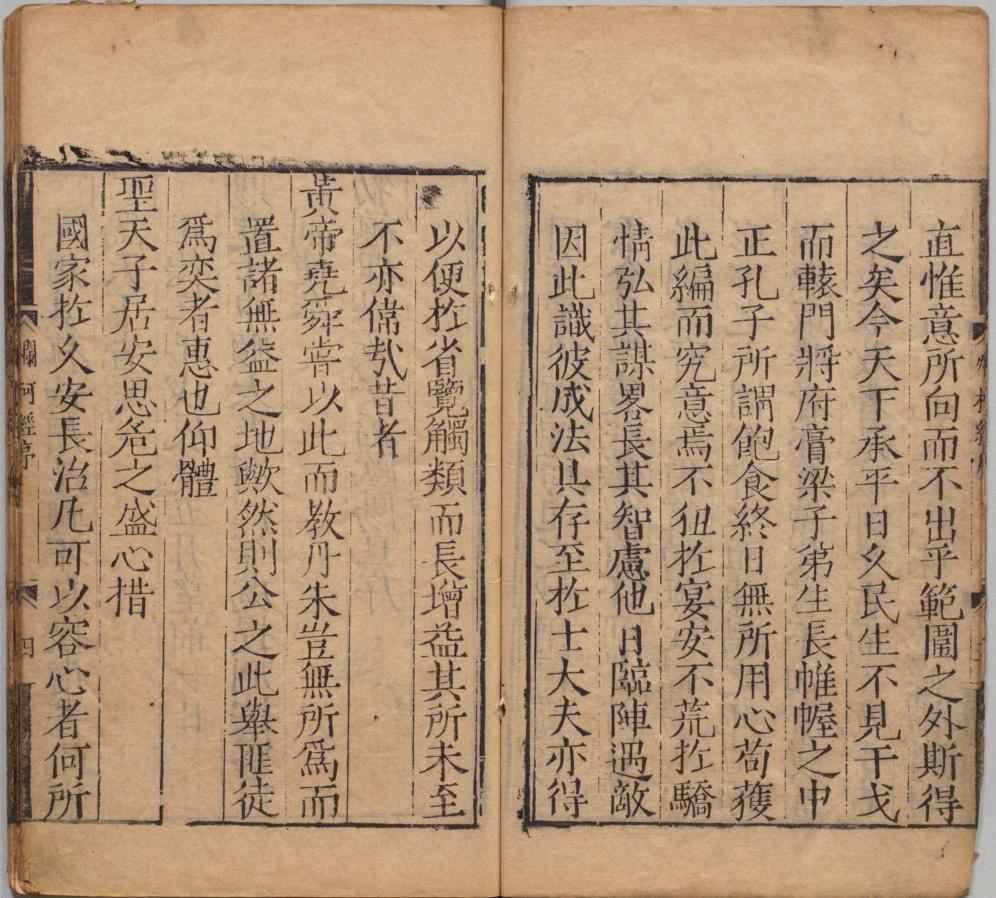 直惟意所向而不出乎範圍之外斯得
之矣今天下承平日久民生不見干戈
而轅門將府膏梁子第生長帷幄之中
正孔子所謂飽食終日無所用心苟獲
此編而究意焉不狃於宴安不荒於驕
情弘其謀畧長其智慮他日臨陣遇敵
因此識彼成法具存至於士大夫亦得
以便於省覽觸類而長增益其所未至
不亦偹㢤昔者
黃帝堯舜嘗以此而教丹朱豈無所爲而
置諸無益之地歟然則公之此舉匪徒
爲奕者惠也仰體
聖天子居安思危之盛心措
國家於久安長治凡可以容心者何所
爛柯經序
四